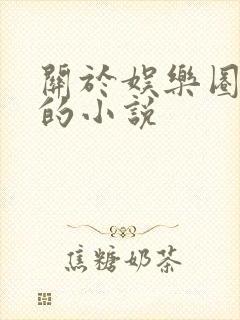 關於娛樂圈
的小說
焦糖奶茶